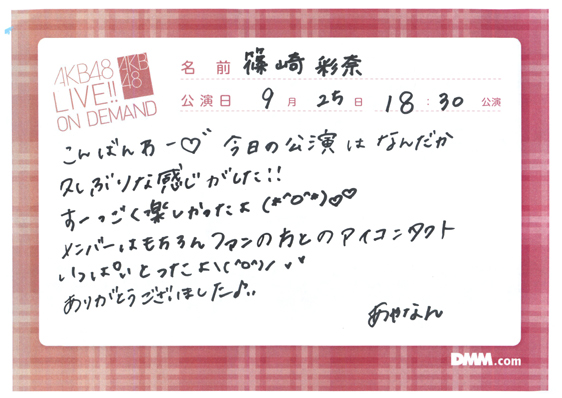 AKB48
LIVE!!
ON DEMAND
AKB
48
名前 篠崎 彩奈
公演日 9月25日 18:30 公演
こんばんあー♡ 今日の公演は なんだか
久しぶりな感じがした!!
すーっごく楽しかったよ (*^O^*)♡♡
メンバーはもちろんファンの方とのアイコンタクト
いっぱいとったよ\(^o^)/
ありがとうございました♪
あやなん
DMM.com